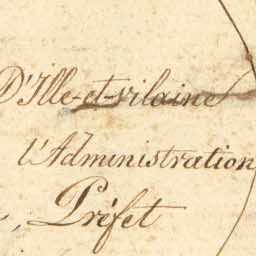 D'Ille-et-vilaine
l'Administration
Préfet